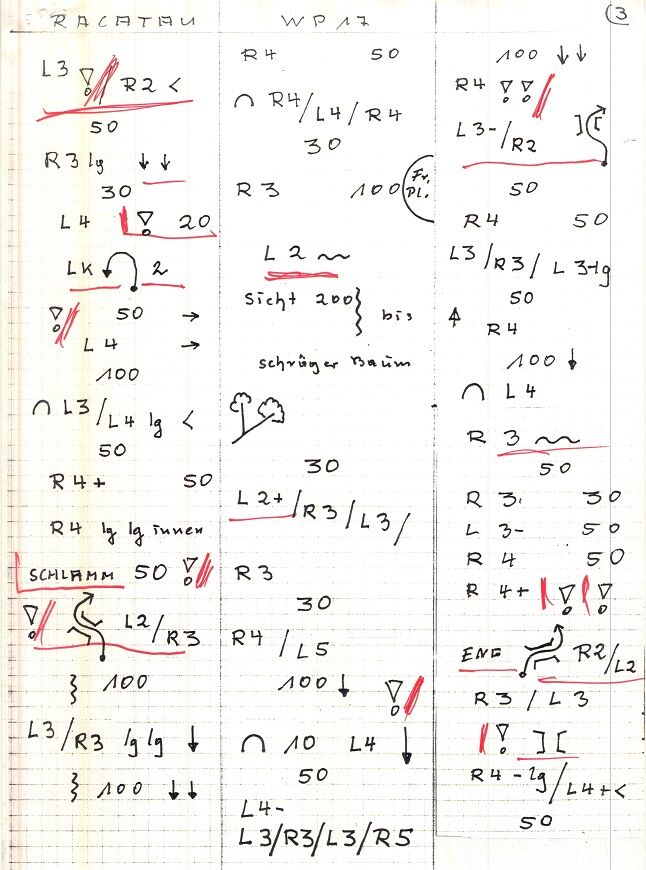 RACATAU WP 17 3
L3 ! R2 <
50
R3 lg ↓ ↓
30
L4 ! 20
LK 2
! 50 →
L4 →
100
∩ L3/L4 lg <
50
R4+ 50
R4 lg lg innen
SCHLAMM 50 !
! L2/R3
100
L3/R3 lg lg ↓
100 ↓↓
R4 50
∩ R4/L4/R4
30
R3 100 Fr. Pl.
L2
Sicht 200 bis
schräger Baum
30
L2+/R3/L3/
R3
30
R4/L5
100 ↓ !
∩ 10 L4 ↓
50
L4-
L3/R3/L3/R5
100 ↓↓
R4 ! !
L3-/R2 ] [
50
R4 50
L3/R3/L3+lg
50
↑ R4
100 ↓
∩ L4
R 3
50
R 3 30
L 3- 50
R 4 50
R 4+ ! !
ENG R2/L2
R3/L3
! ] [
R4-lg/L4+<
50